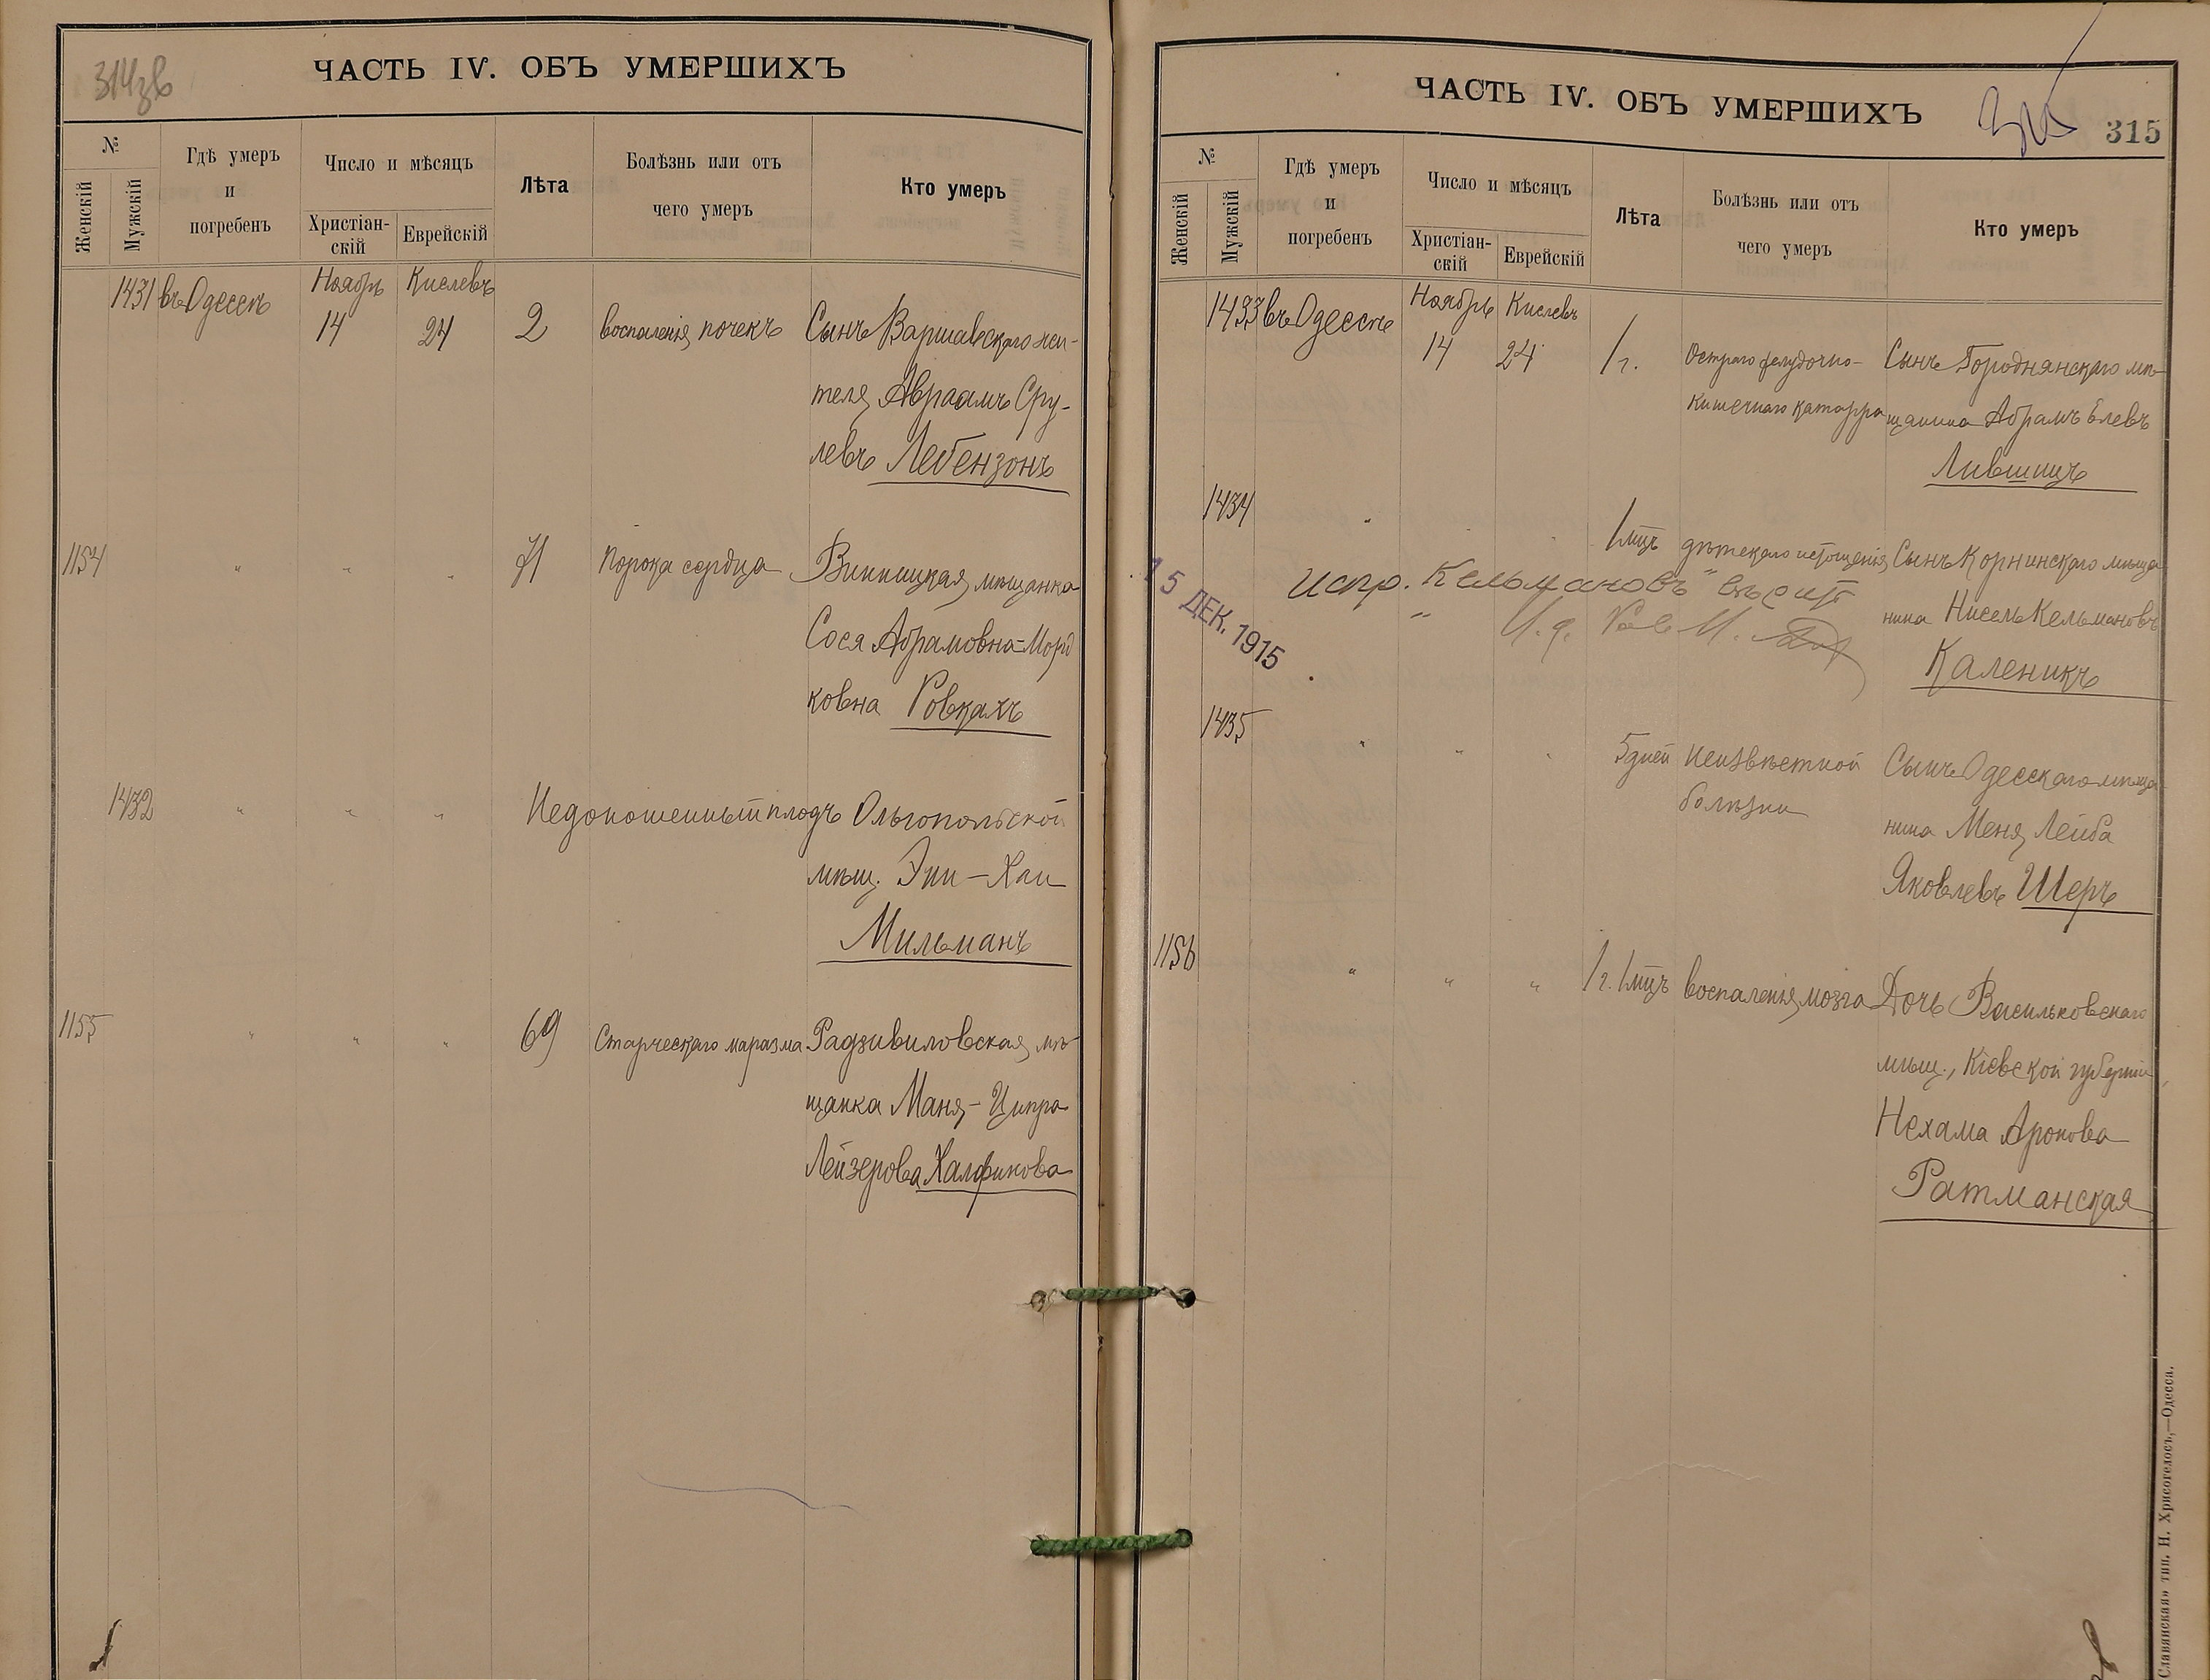 314зв
ЧАСТЬ IV. ОБЪ УМЕРШИХЪ
№
Женскій
Мужскій
Гдѣ умеръ
и
погребенъ
Число и мѣсяцъ
Христіан-
скій
Еврейскій
Лѣта
Болѣзнь или отъ
чего умеръ
Кто умеръ
1431 въ Одессѣ Ноябрь Кислевъ
14 24 2 воспаленія почекъ Сынъ Варшавскаго жи-
теля Авраамъ Сру-
левъ Лебензонъ
1154 " " " 71 порока сердца Винницкая мѣщанка
Сося Абрамовна-Морд
ковна Ровкахъ
1432 " " " Недоношенный плодъ Ольгопольской
мѣщ. Эни-Хаи
Мильманъ
1155 " " " 69 Старческаго маразма Радзивиловская мѣ-
щанка Маня-Ципра
Лейзерова Халфинова
ЧАСТЬ IV. ОБЪ УМЕРШИХЪ
315
315
№
Женскій
Мужскій
Гдѣ умеръ
и
погребенъ
Число и мѣсяцъ
Христіан-
скій
Еврейскій
Лѣта
Болѣзнь или отъ
чего умеръ
Кто умеръ
1433 въ Одессѣ Ноябрь Кислевъ
14 24 1 г. Остраго желудочно- Сынъ Городнянскаго мѣ-
кишечнаго катарра щанина Абрамъ Елевъ
Лившицъ
1434 " " " 1 мцъ дѣтскаго истощенія Сынъ Корнинскаго мѣща
нина Нисель Кельмановъ
Каленикъ
Испр. "Кельмановъ" вѣрить
И. д.
15 ДЕК. 1915
1435 " " " 5 дней неизвѣстной Сынъ Одесскаго мѣща
болѣзни нина Меня Лейба
Яковлевъ Шеръ
1156 " " " 1 г. 1 мцъ воспаленія мозга Дочь Васильковскаго
мѣщ., Кіевской губерніи
Нехама Аронова
Ратманская
Славянская» тип. Н. Хрисогелосъ,—Одесса.